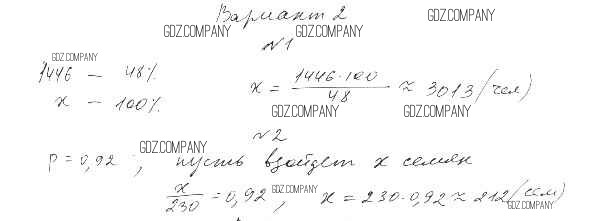 Вариант 2
GDZ.COMPANY GDZ.COMPANY GDZ.COMPANY
№1
GDZ.COMPANY
1446 — 48%
x — 100%
x = 1446·100 / 48 ≈ 3013 (чел)
GDZ.COMPANY GDZ.COMPANY
№2
GDZ.COMPANY
p = 0,92 ; пусть взойдет x семян
x / 230 = 0,92 , x = 230·0,92 ≈ 212 (сем)
GDZ.COMPANY GDZ.COMPANY